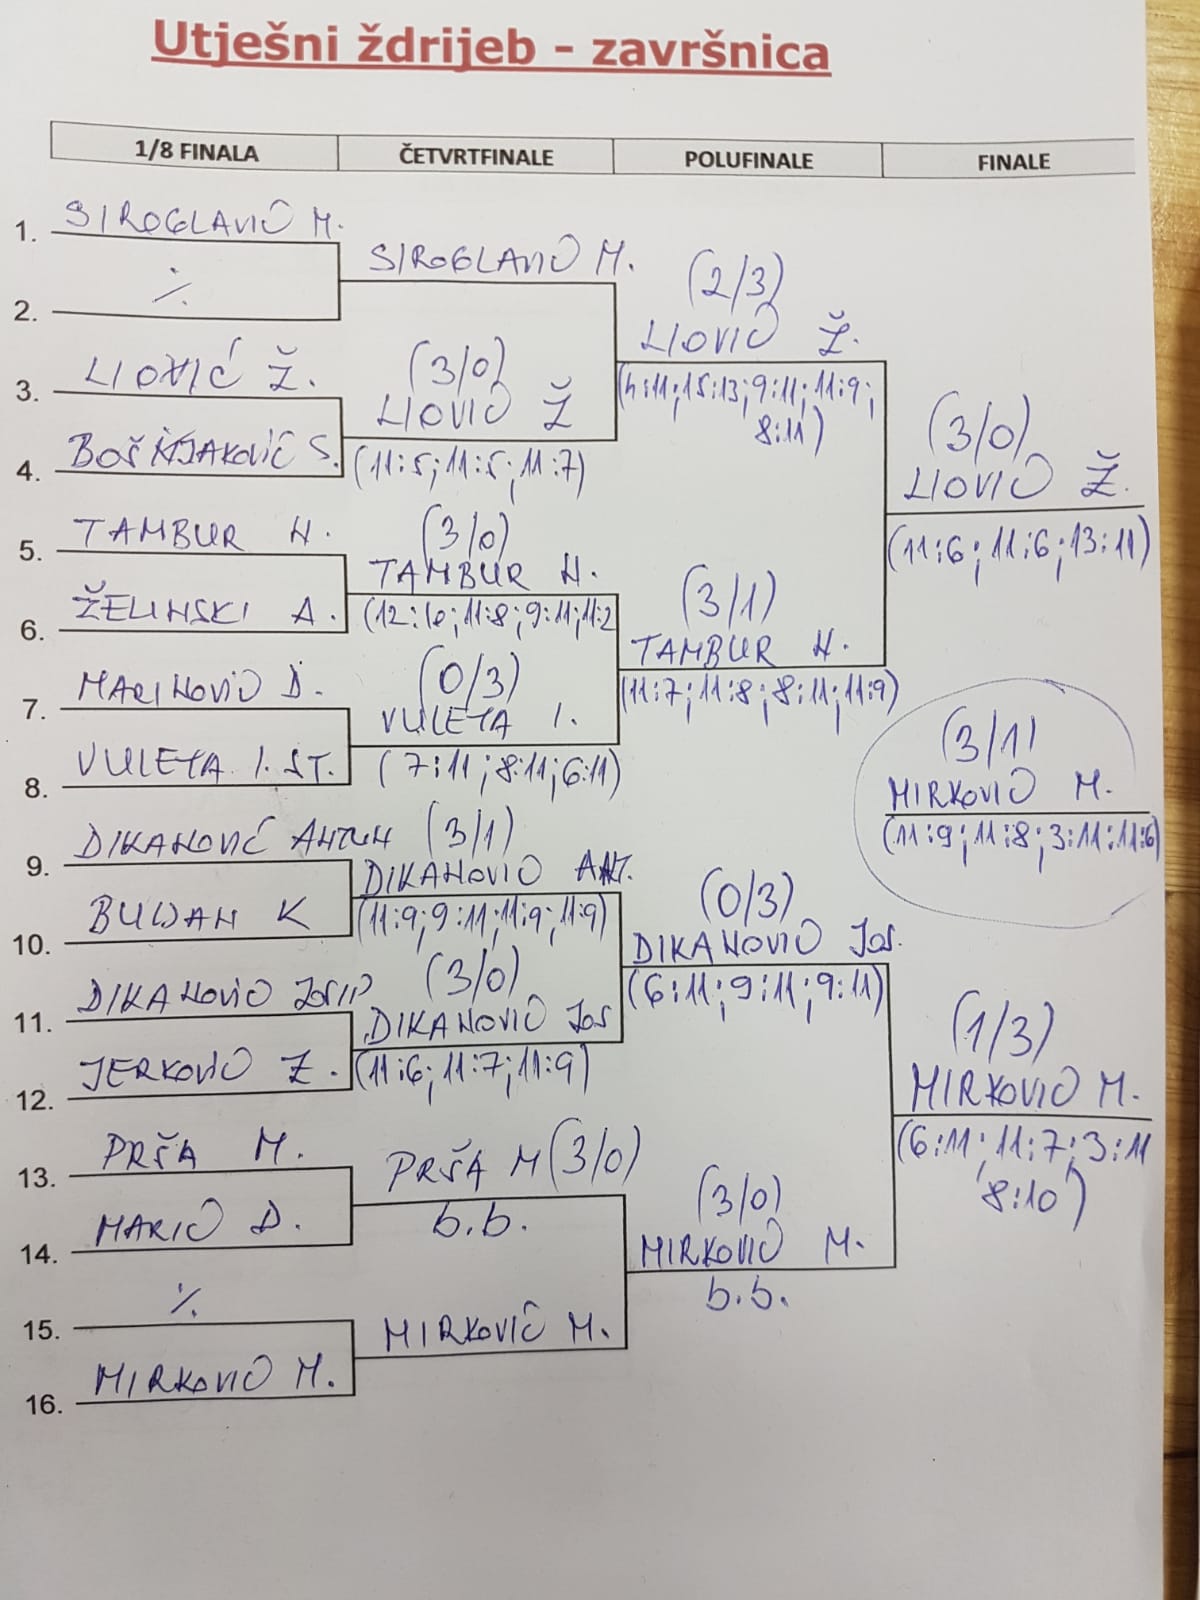 Utješni ždrijeb - završnica
1/8 FINALA ČETVRTFINALE POLUFINALE FINALE
1. SIROGLAVIĆ M.
SIROGLAVIĆ M.
2. ·/.
(2/3)
LIOVIĆ Ž.
(4:11; 15:13; 9:11; 11:9;
8:11)
3. LIOVIĆ Ž.
(3/0)
LIOVIĆ Ž
4. BOŠNJAKOVIĆ S.
(11:5; 11:5; 11:7)
(3/0)
LIOVIĆ Ž.
(11:6; 11:6; 13:11)
5. TAMBUR H.
(3/0)
TAMBUR H.
6. ŽELINSKI A.
(12:10; 11:8; 9:11; 11:2
(3/1)
TAMBUR H.
(11:7; 11:8; 8:11; 11:9)
7. MARINOVIĆ D.
(0/3)
VULETA I.
8. VULETA I. ST.
(7:11; 8:11; 6:11)
(3/1)
MIRKOVIĆ M.
(11:9; 11:8; 3:11; 11:6)
9. DIKANOVIĆ ANTUN
(3/1)
DIKANOVIĆ ANT.
10. BULJAN K
(11:9; 9:11; 11:9; 11:9)
(0/3)
DIKANOVIĆ JOS.
(6:11; 9:11; 9:11)
11. DIKANOVIĆ JOSIP
(3/0)
DIKANOVIĆ JOS
12. JERKOVIĆ Z.
(11:6; 11:7; 11:9)
(1/3)
MIRKOVIĆ M.
(6:11; 11:7; 3:11
8:10)
13. PRŠA M.
PRŠA M (3/0)
14. MARIĆ D.
b.b.
(3/0)
MIRKOVIĆ M.
b.b.
15. ·/.
MIRKOVIĆ M.
16. MIRKOVIĆ M.